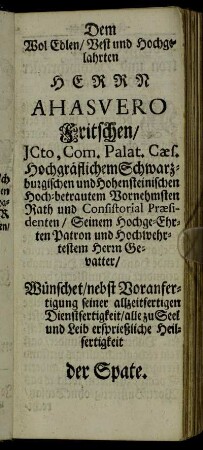 Dem
Wol Edlen/ Vest und Hochge-
lahrten
HERRN
AHASVERO
Fritschen/
JCto, Com. Palat. Cæs.
Hochgräflichem Schwarz-
burgischen und Hohensteinischen
Hoch-betrautem Vornehmsten
Rath und Consistorial Præsi-
denten/ Seinem Hochge-Ehr-
ten Patron und Hochwehr-
testem Herrn Ge-
vatter/
Wünschet/ nebst Voranfer-
tigung seiner allzeitfertigen
Dienstfertigkeit/ alle zu Seel
und Leib ersprießliche Heil-
fertigkeit
der Spate.